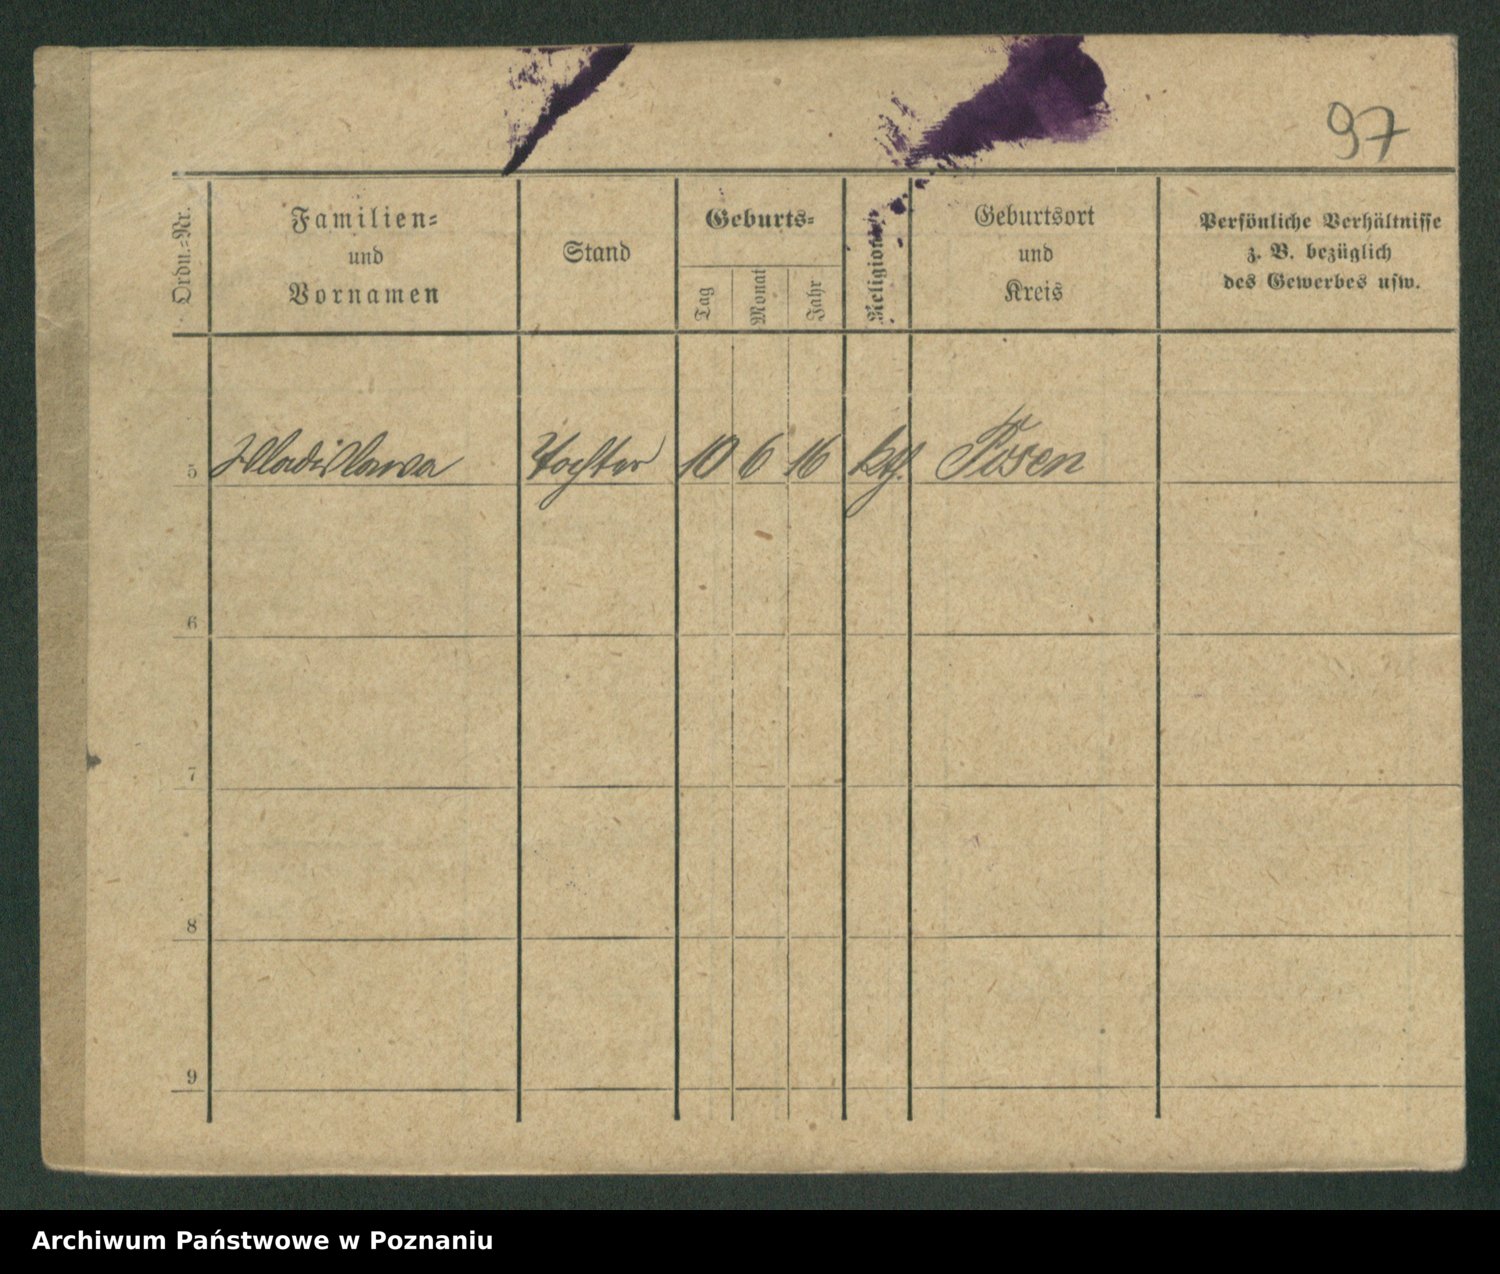 97
Ordn.-Nr.
Familien-
und
Vornamen
Stand
Geburts-
Tag
Monat
Jahr
Religion
Geburtsort
und
Kreis
Persönliche Verhältnisse
z. B. bezüglich
des Gewerbes usw.
5 Wladislawa Tochter 10 6 16 kth. Posen
6
7
8
9
Archiwum Państwowe w Poznaniu